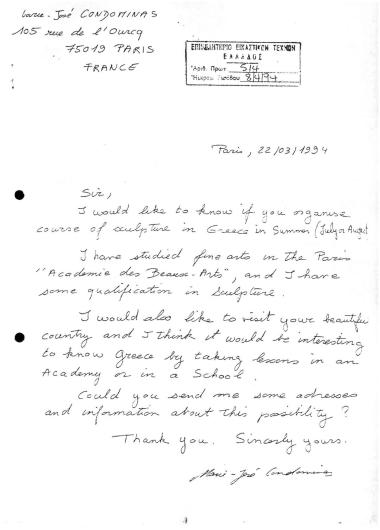 Marie-José CONDOMINAS
105 rue de l'Ourcq
75019 PARIS
FRANCE
ΕΠΙΜΕΛΗΤΗΡΙΟ ΕΙΚΑΣΤΙΚΩΝ ΤΕΧΝΩΝ
ΕΛΛΑΔΟΣ
Αριθ. Πρωτ. 514
Ημερομ. Εισόδου 8/4/94
Paris, 22/03/1994
Sir,
I would like to know if you organise
course of sculpture in Greece in Summer (July or August
I have studied fine arts in the Paris
"Academie des Beaux-Arts", and I have
some qualification in Sculpture.
I would also like to visit your beautiful
country and I think it would be interesting
to know Greece by taking lessons in an
Academy or in a School.
Could you send me some adresses
and information about this possibility?
Thank you. Sincerly yours.
Marie-José Condominas